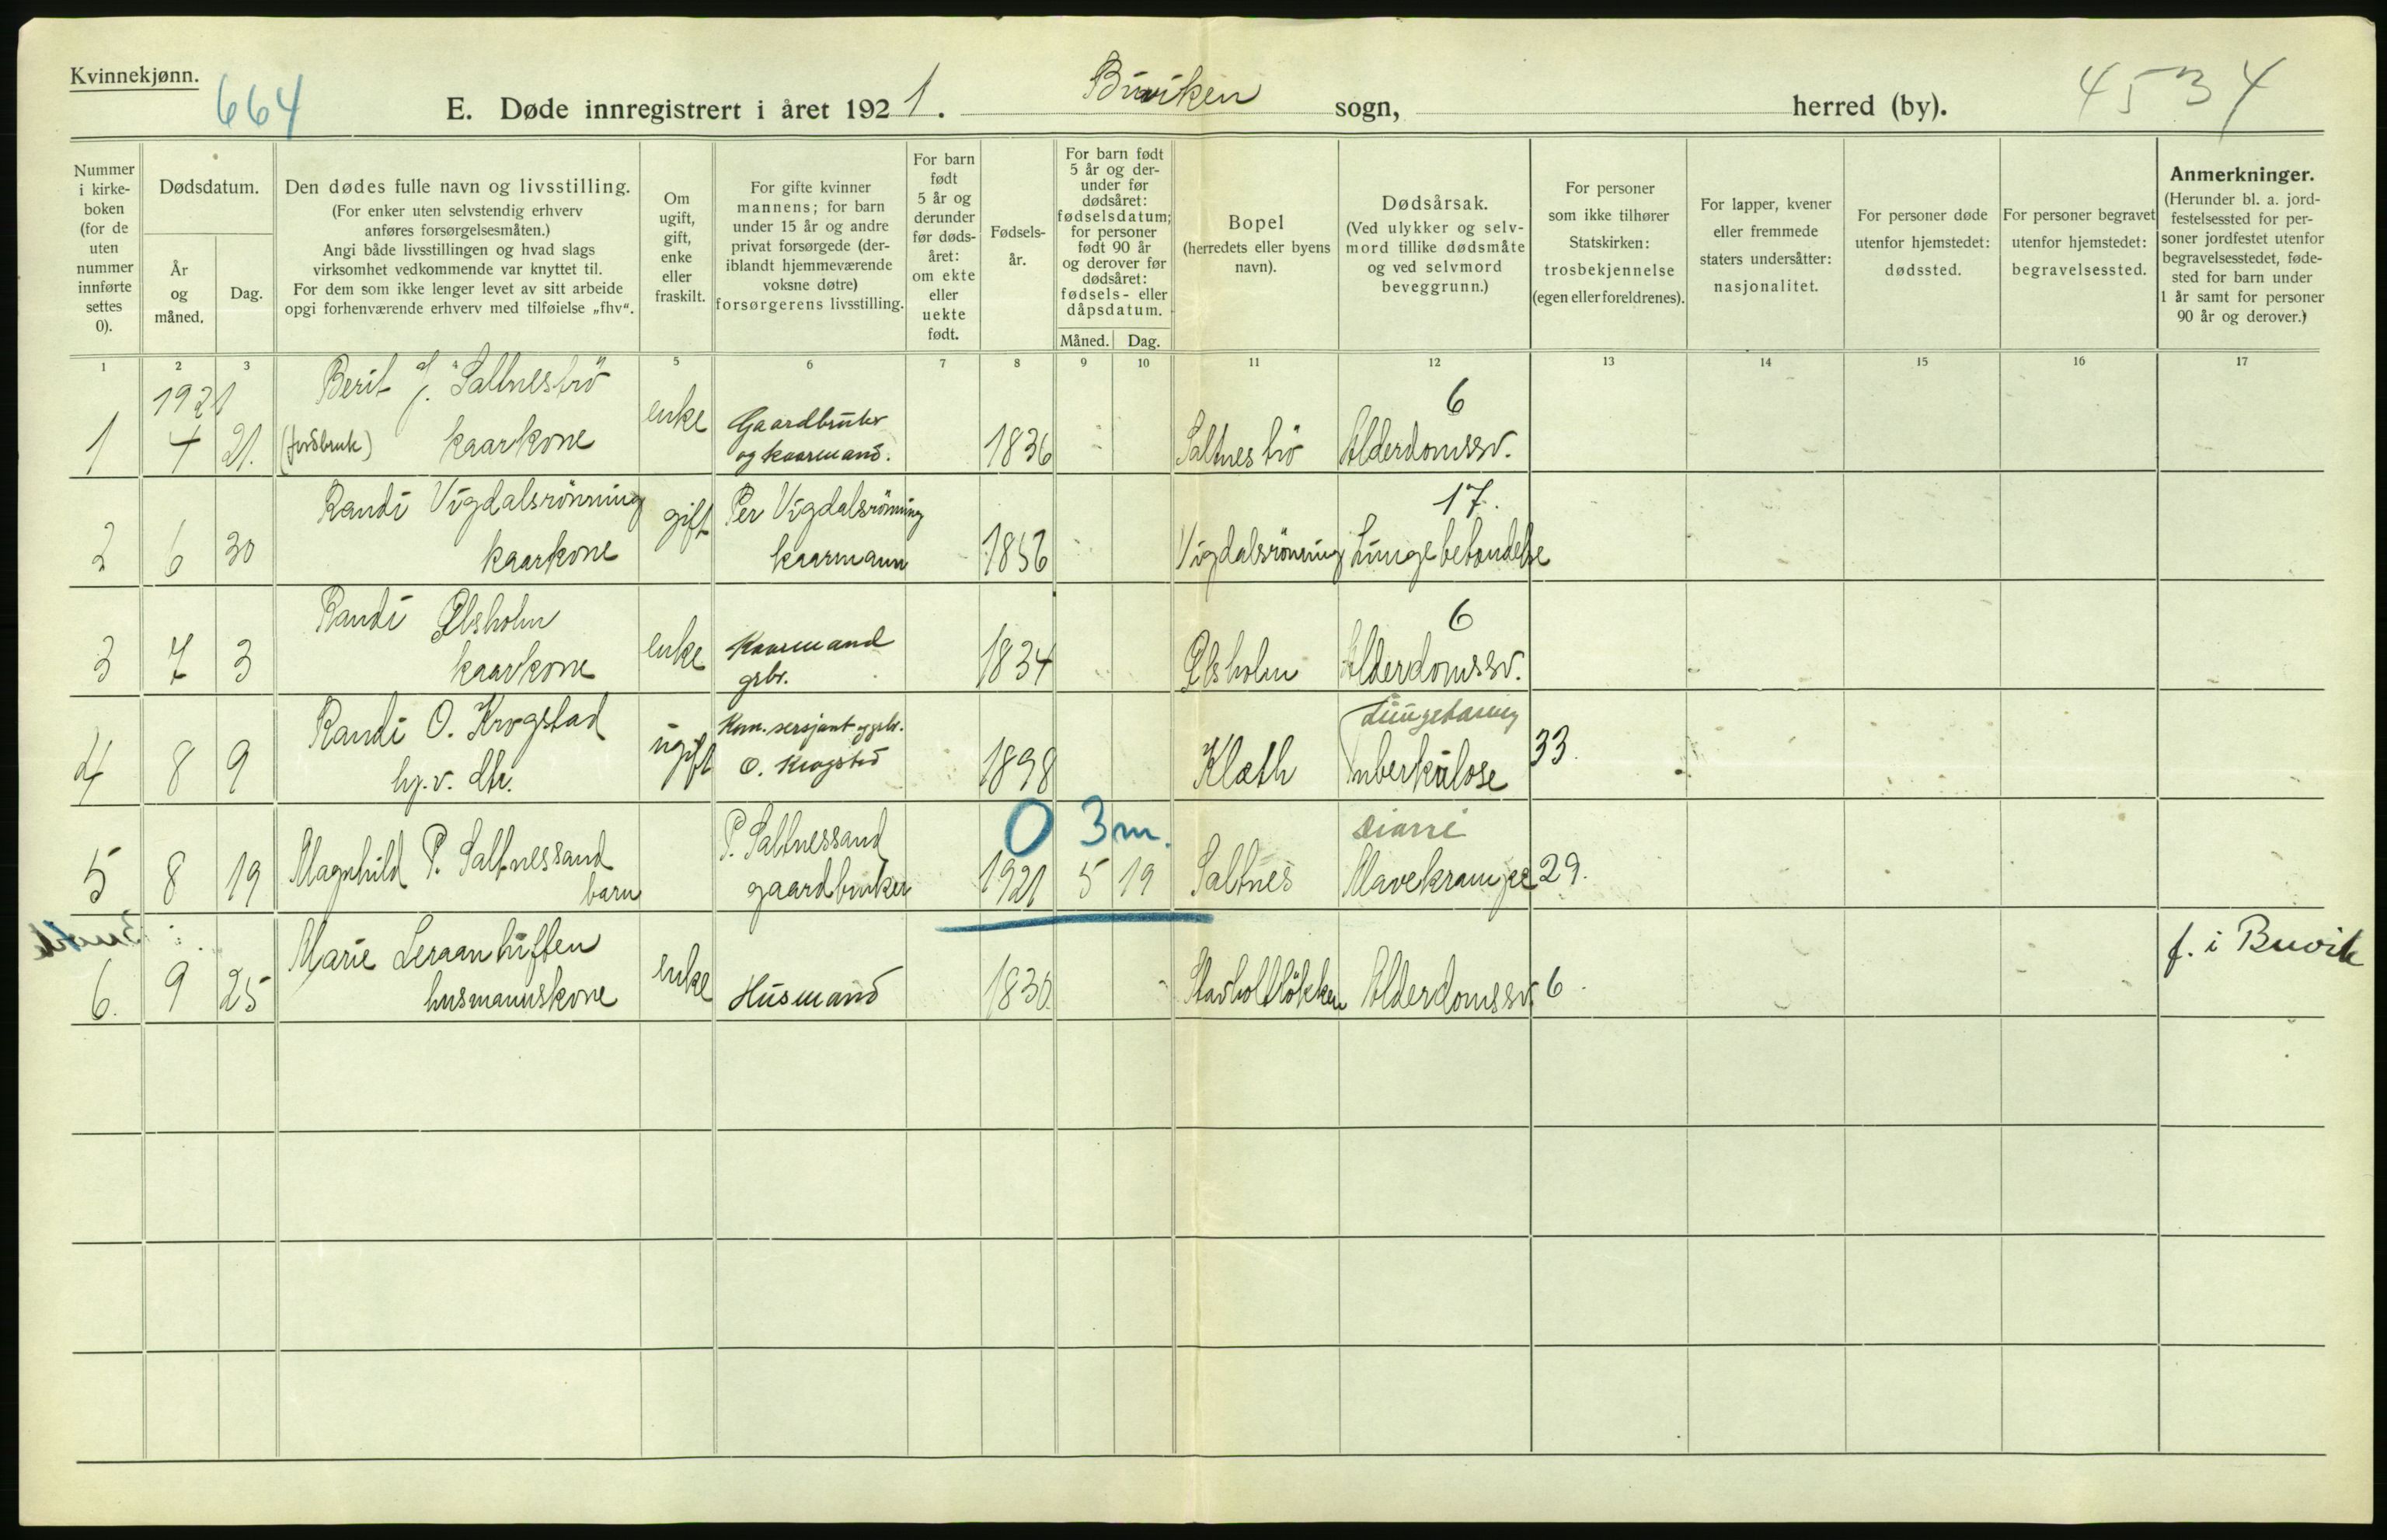 Kvinnekjønn.
664
E. Døde innregistrert i året 1921. Buviken sogn, herred (by).
4534
Nummer i kirke-boken (for de uten nummer innførte settes 0).
Dødsdatum.
År og måned.
Dag.
Den dødes fulle navn og livsstilling.
(For enker uten selvstendig erhverv anføres forsørgelsesmåten.)
Angi både livsstillingen og hvad slags virksomhet vedkommende var knyttet til.
For dem som ikke lenger levet av sitt arbeide opgi forhenværende erhverv med tilføielse „fhv“.
Om ugift, gift, enke eller fraskilt.
For gifte kvinner mannens; for barn under 15 år og andre privat forsørgede (der-iblandt hjemmeværende voksne døtre) forsørgerens livsstilling.
For barn født 5 år og derunder før døds-året: om ekte eller uekte født.
Fødsels-år.
For barn født 5 år og der-under før dødsåret: fødselsdatum; for personer født 90 år og derover før dødsåret: fødsels- eller dåpsdatum.
Måned. Dag.
Bopel (herredets eller byens navn).
Dødsårsak.
(Ved ulykker og selv-mord tillike dødsmåte og ved selvmord beveggrunn.)
For personer som ikke tilhører Statskirken: trosbekjennelse (egen eller foreldrenes).
For lapper, kvener eller fremmede staters undersåtter: nasjonalitet.
For personer døde utenfor hjemstedet: dødssted.
For personer begravet utenfor hjemstedet: begravelsessted.
Anmerkninger.
(Herunder bl. a. jord-festelsessted for per-soner jordfestet utenfor begravelsesstedet, føde-sted for barn under 1 år samt for personer 90 år og derover.)
1 2 3 5 6 7 8 9 10 11 12 13 14 15 16 17
1921 Berit J. Saltneströ 6
1 4 21. (jordbruk) kaarkone enke Gaardbruker og kaarmand. 1836 Saltneströ Alderdomssv.
Randi Vigdalsrönning gift Per Vigdalsrönning 17.
2 6 30 kaarkone kaarmann 1856 Vigdalsrönning Lungebetændelse
Randi Ølsholm 6
3 7 3 kaarkone enke Kaarmand gbr. 1834 Ølsholm Alderdomssv.
Randi O. Krogstad ugift Kom. sersjant og gbr. Lungetæring
4 8 9 hj.v. dtr. O. Krogstad 1898 Klæth Tuberkulose 33.
0 3 m.
Magnhild P. Saltnessand P. Saltnessand diarré
5 8 19 barn gaardbruker 1921 5 19 Saltnes Mavekrampe 29.
Marie Leraanhuften f. i Buvik
6. 9 25 husmannskone enke Husmand 1830 Alderdomssv. 6